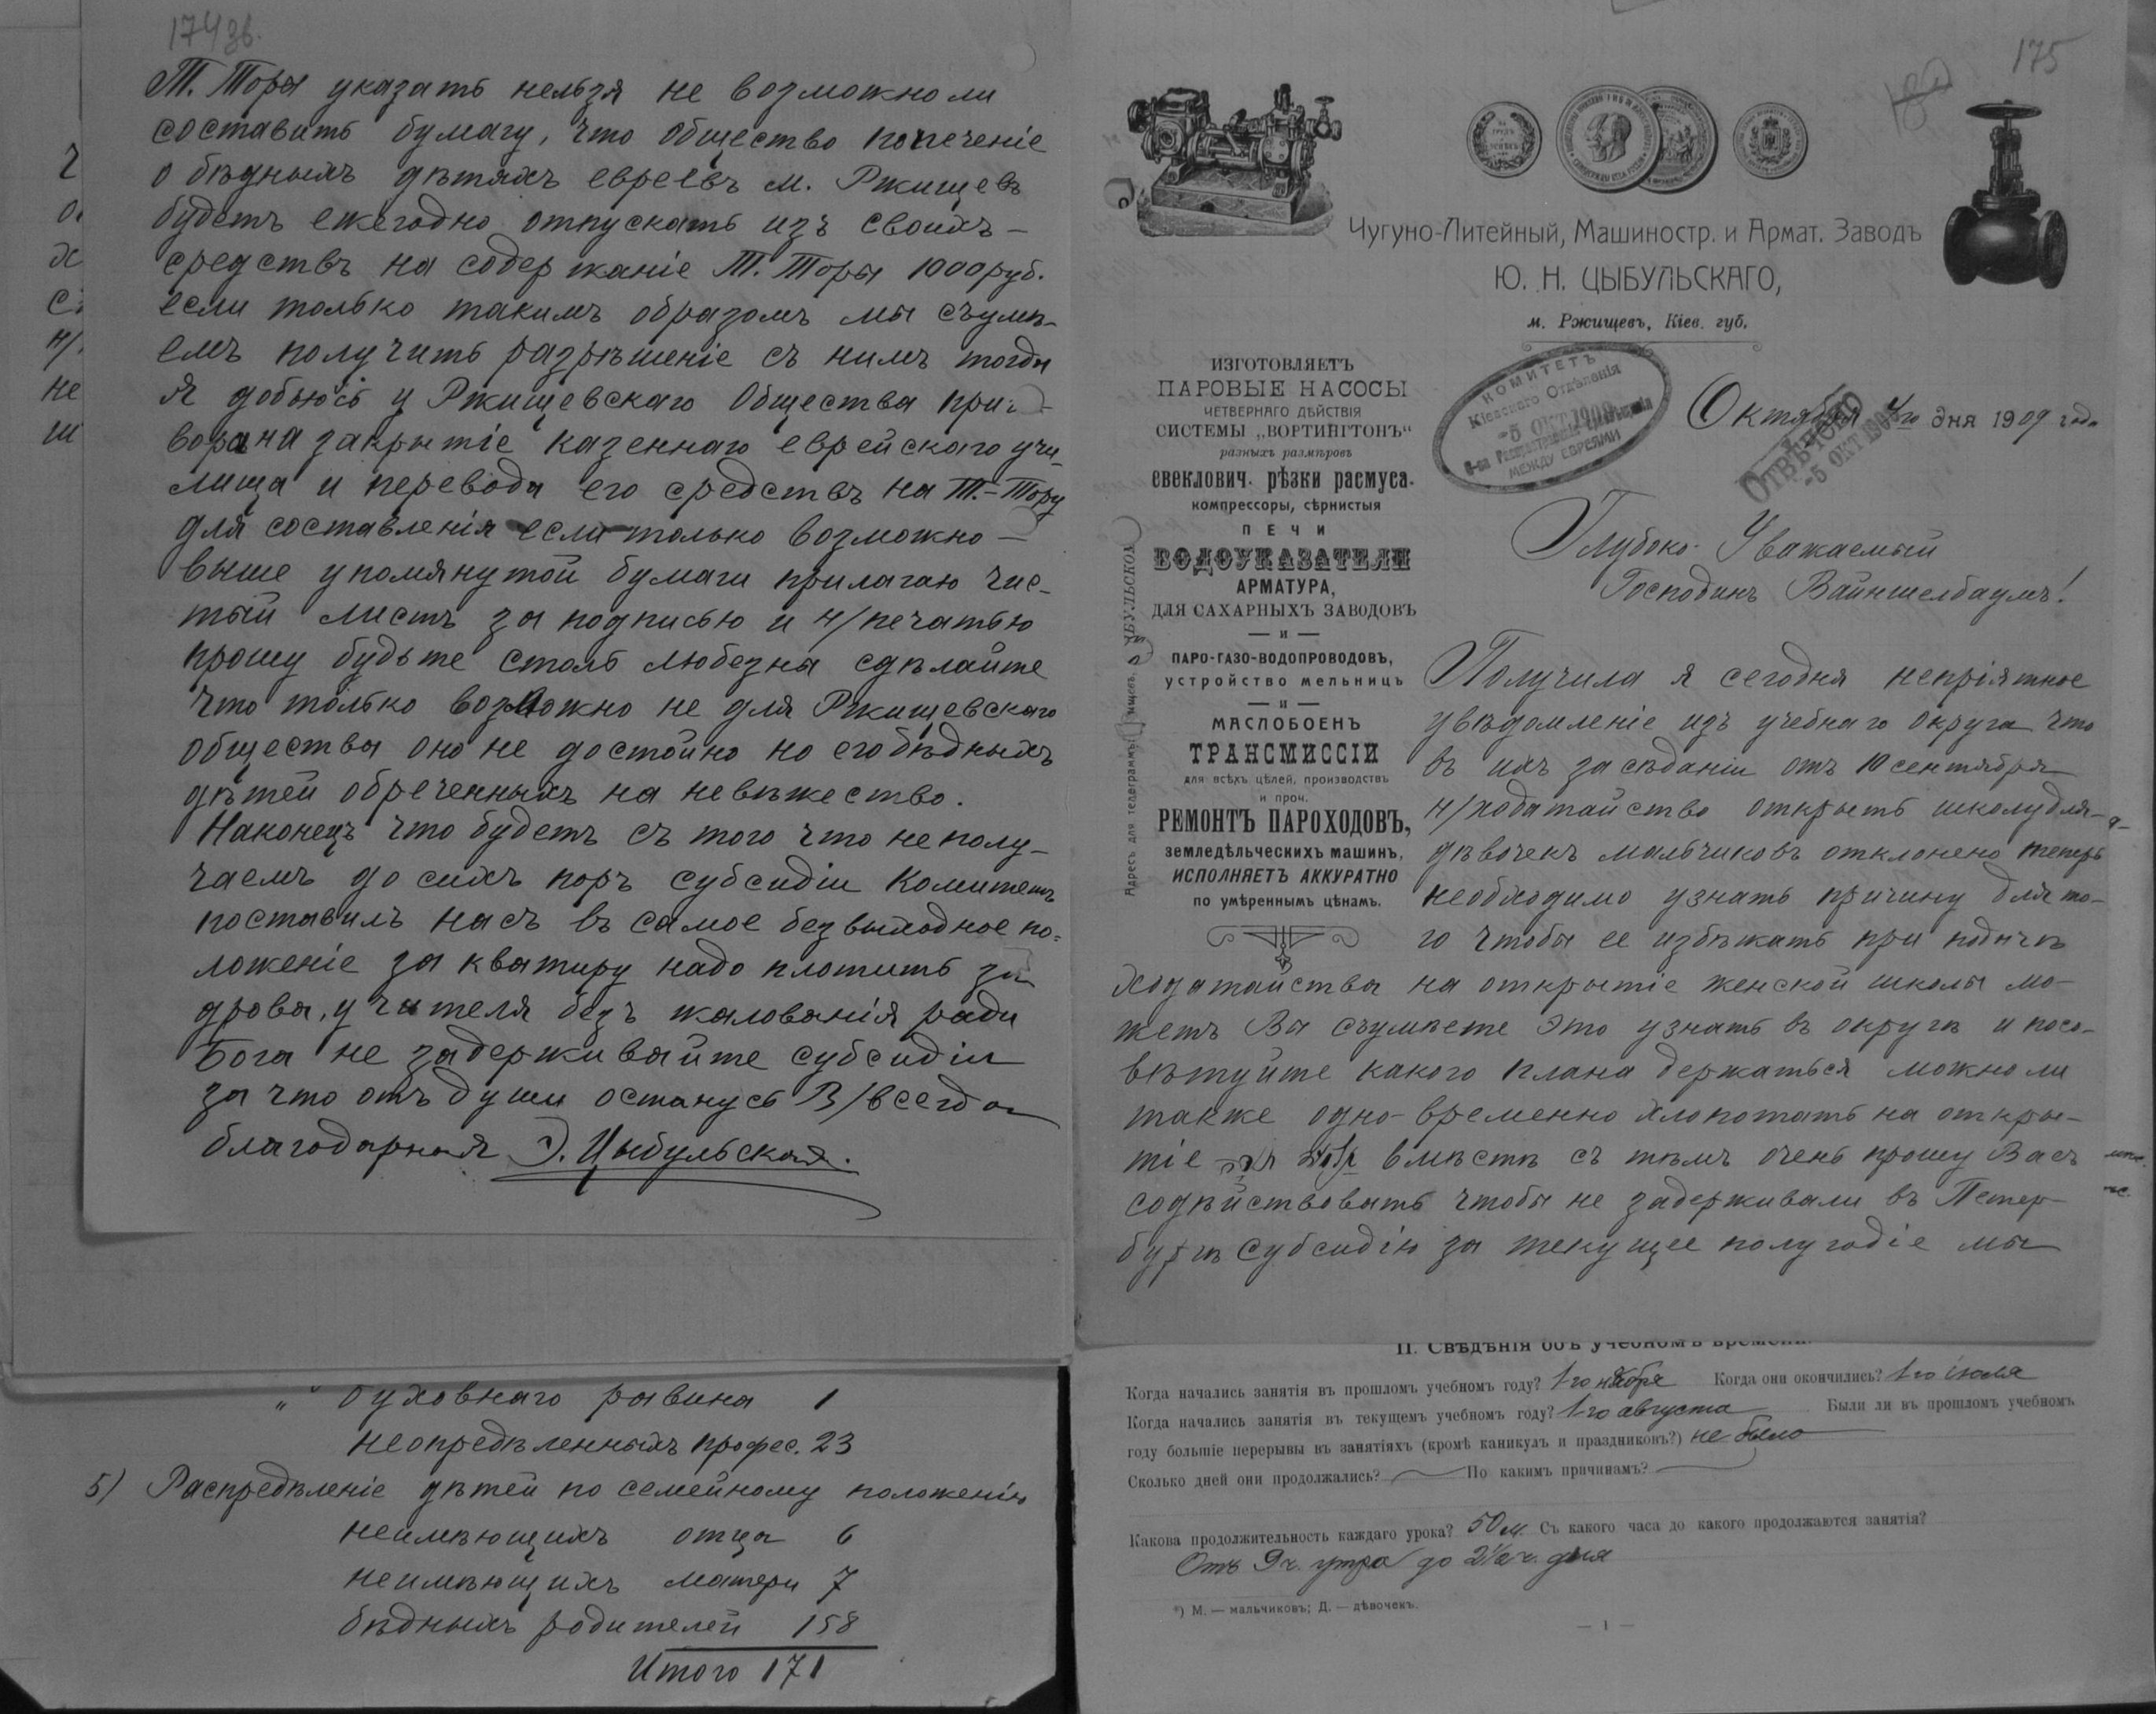 174 зв.
Т. Торы указать нельзя не возможно ли
составить бумагу, что общество попеченіе
о бѣдныхъ дѣтяхъ евреевъ м. Ржищевъ
будетъ ежегодно отпускать изъ своихъ –
средствъ на содержаніе Т. Торы 1000 руб.
если только такимъ образомъ мы съумѣ-
емъ получить разрѣшеніе съ нимъ тогда
я добьюсь у Ржищевскаго Общества при-
вора на закрытіе казеннаго еврейскаго учи-
лища и перевода его средствъ на Т.-Тору
для составленія если только возможно –
выше упомянутой бумаги прилагаю чис-
тый листъ за подписью и н/печатью
прошу будьте столь любезны сдѣлайте
что только возможно не для Ржищевскаго
общества оно не достойно но его бѣдныхъ
дѣтей обреченныхъ на невѣжество.
Наконецъ что будетъ съ того что не полу-
чаемъ до сихъ поръ субсидіи Комитетъ
поставилъ насъ въ самое безвыходное по-
ложеніе за кватиру надо плотить за
дрова, учителя безъ жалованія ради
Бога не задерживайте субсидіи
за что отъ души остануся В/всегда
благодарная Э. Цыбульская.
" духовнаго равина 1
неопредѣленныхъ профес. 23
5) Распредѣленіе дѣтей по семейному положенію
неимѣющихъ отца 6
неимѣющихъ матери 7
бѣдныхъ родителей 158
Итого 171
175
Чугуно-Литейный, Машиностр. и Армат. Заводъ
Ю. Н. ЦЫБУЛЬСКАГО,
м. Ржищевъ, Кіев. губ.
ИЗГОТОВЛЯЕТЪ
ПАРОВЫЕ НАСОСЫ
ЧЕТВЕРНАГО ДѢЙСТВІЯ
СИСТЕМЫ „ВОРТИНГТОНЪ“
разныхъ размѣровъ
свеклович. рѣзки расмуса.
компрессоры, сѣрнистыя
ПЕЧИ
ВОДОУКАЗАТЕЛИ
АРМАТУРА,
ДЛЯ САХАРНЫХЪ ЗАВОДОВЪ
— и —
ПАРО-ГАЗО-ВОДОПРОВОДОВЪ,
устройство мельницъ
— и —
МАСЛОБОЕНЪ
ТРАНСМИССІИ
для всѣхъ цѣлей, производствъ
и проч.
РЕМОНТЪ ПАРОХОДОВЪ,
земледѣльческихъ машинъ,
ИСПОЛНЯЕТЪ АККУРАТНО
по умѣреннымъ цѣнамъ.
Адресъ для телеграммъ:
КОМИТЕТЪ
Кіевскаго Отдѣленія
-5 ОКТ 1909
О-ва Распространенія Просвѣщенія
МЕЖДУ ЕВРЕЯМИ
Октября 4го дня 1909 года
ОТВѢЧЕНО
-5 ОКТ 1909
Глубоко-Уважаемый
Господинъ Вайншелбаумъ!
Получила я сегодня непріятное
увѣдомленіе изъ учебнаго округа что
въ ихъ засѣданіи отъ 10 сентября
н/ходатайство открыть школу для-
дѣвочекъ мальчиковъ отклонено теперь
необходимо узнать причину для то-
го чтобы ее избѣжать при подачѣ
ходатайства на открытіе женской школы мо-
жетъ Вы съумѣете это узнать въ округѣ и посо-
вѣтуйте какого плана держаться можно ли
также одно-временно хлопотать на откры-
тіе вмѣстѣ съ тѣмъ очень прошу Васъ
содѣйствовать чтобы не задерживали въ Петер-
бургѣ субсидію за текущее полугодіе мы
II. Свѣдѣнія объ учебномъ времени.
Когда начались занятія въ прошломъ учебномъ году? 1го ноября Когда они окончились? 1го іюля
Когда начались занятія въ текущемъ учебномъ году? 1го августа Были ли въ прошломъ учебномъ
году большіе перерывы въ занятіяхъ (кромѣ каникулъ и праздниковъ?) не было
Сколько дней они продолжались? По какимъ причинамъ?
Какова продолжительность каждаго урока? 50 м. Съ какого часа до какого продолжаются занятія?
Отъ 9 ч. утра до 2½ ч. дня
*) М. — мальчиковъ; Д. — дѣвочекъ.
— 1 —